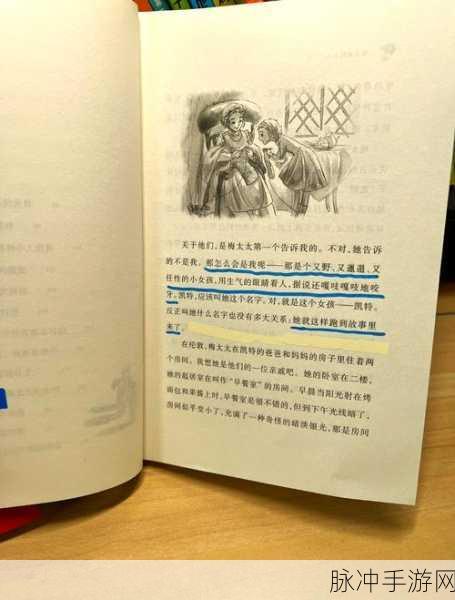 关于他们，是梅太太第一个告诉我的。不对，她告诉
的不是我。那怎么会是我呢——那是个又野、又邋遢、又
任性的小女孩，用生气的眼睛看人，据说还嘎吱嘎吱地咬
牙。凯特，应该叫她这个名字。对，就是这个女孩——凯特。
反正叫她什么名字也没有多大关系：她就这样跑到故事里
来了。
在伦敦，梅太太在凯特的爸爸和妈妈的房子里住着两
个房间。我想她是他们的一位亲戚吧。她的卧室在二楼，
她的起居室在叫作“早餐室”的房间。早晨当阳光射在烤
面包和果酱上时，早餐室是很不错的，但到下午光线暗了，
房间似乎变小了，充满了一种奇怪的暗淡银光，那是房间
脉冲手游网